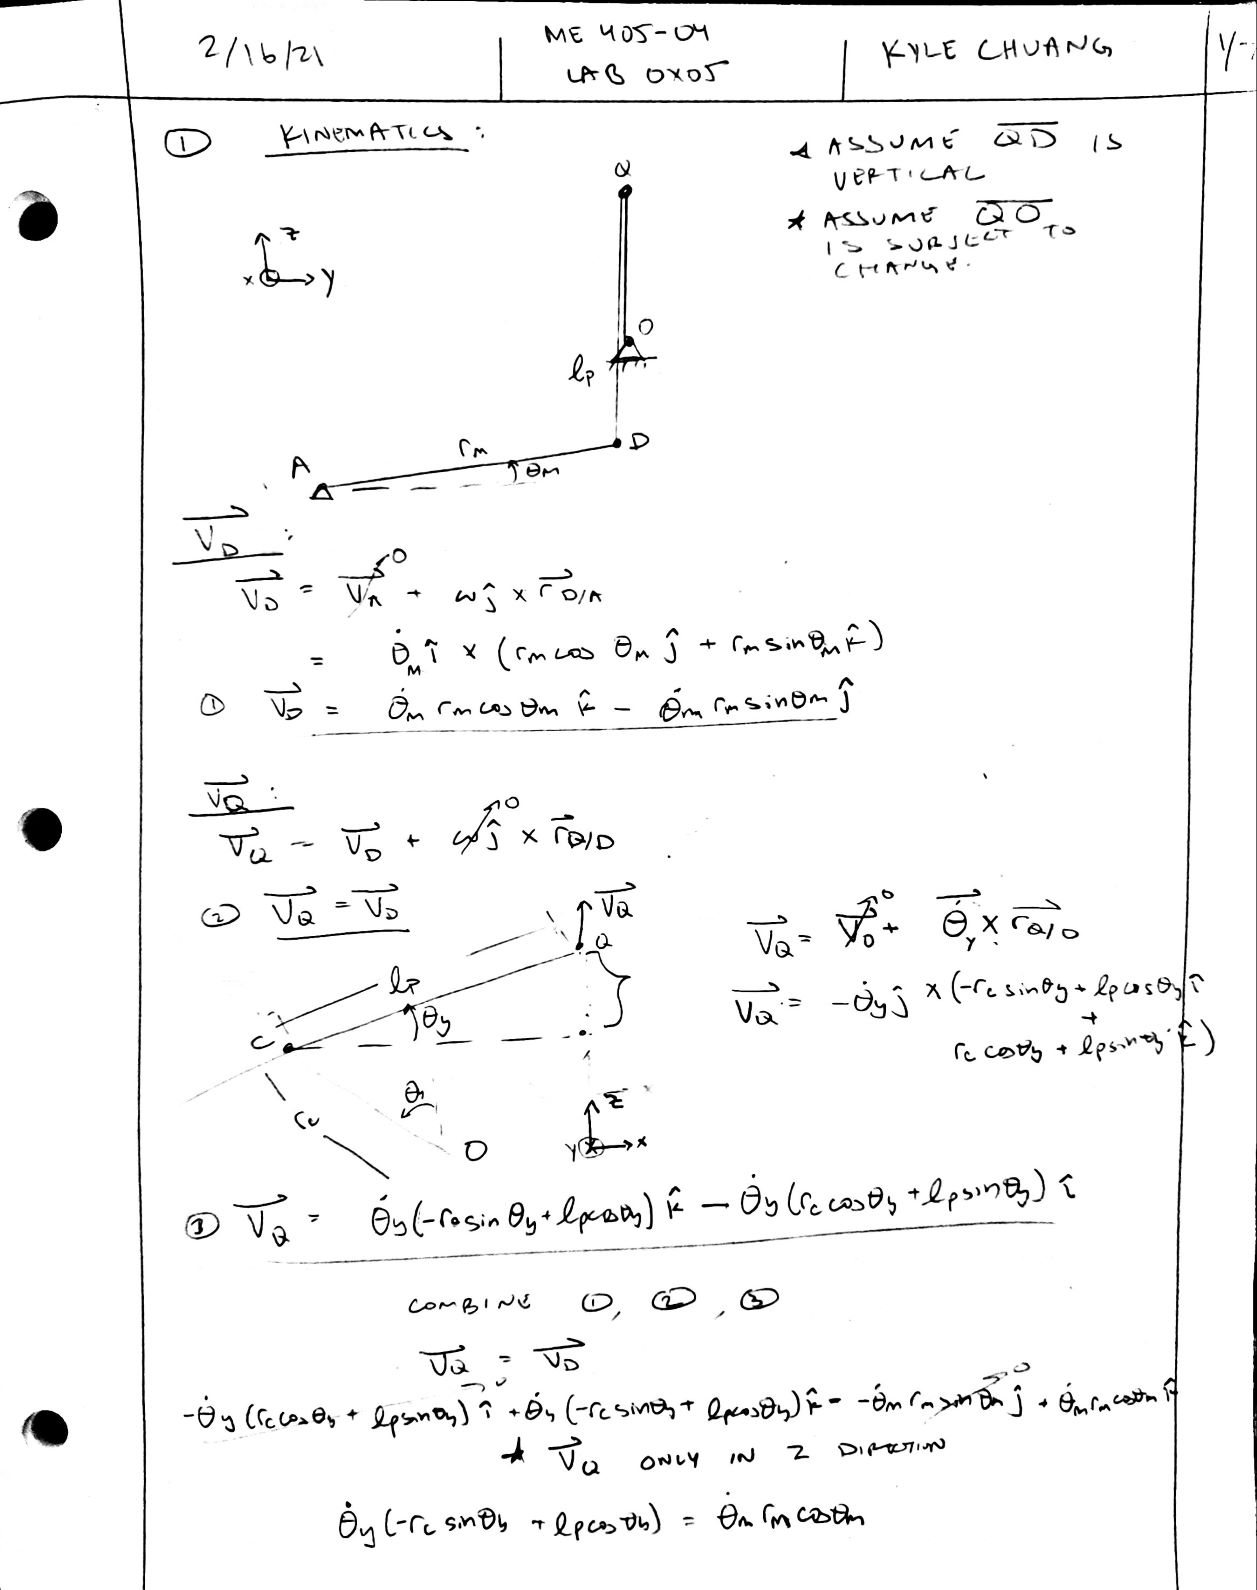 2/16/21
ME 405-04
LAB 0X05
KYLE CHUANG
1/
① KINEMATICS :
★ ASSUME QD IS
VERTICAL
★ ASSUME QO
IS SUBJECT TO
CHANGE.
Q
z
x y
O
lp
rm
D
A
θm
V_D :
V_D = V_A 0 + ωĵ × r_D/A
= θ̇_M î × (rm cos θm ĵ + rm sin θm k̂)
① V_D = θ̇m rm cos θm k̂ – θ̇m rm sin θm ĵ
V_Q :
V_Q = V_D + ωĵ 0 × r_Q/D
② V_Q = V_D
V_Q
Q
lp
θy
C
rc
θy
O
z
y x
V_Q = V_O 0 + θ̇y × r_Q/O
V_Q = -θ̇y ĵ × (-rc sinθy + lp cosθy î
+
rc cosθy + lp sinθy k̂)
③ V_Q = θ̇y (-rc sin θy + lp cosθy) k̂ – θ̇y (rc cosθy + lp sinθy) î
COMBINE ①, ②, ③
V_Q = V_D
-θ̇y (rc cosθy + lp sinθy) î 0 + θ̇y (-rc sinθy + lp cosθy) k̂ = -θ̇m rm sin θm ĵ 0 + θ̇m rm cosθm k̂
★ V_Q ONLY IN Z DIRECTION
θ̇y (-rc sinθy + lp cosθy) = θ̇m rm cosθm